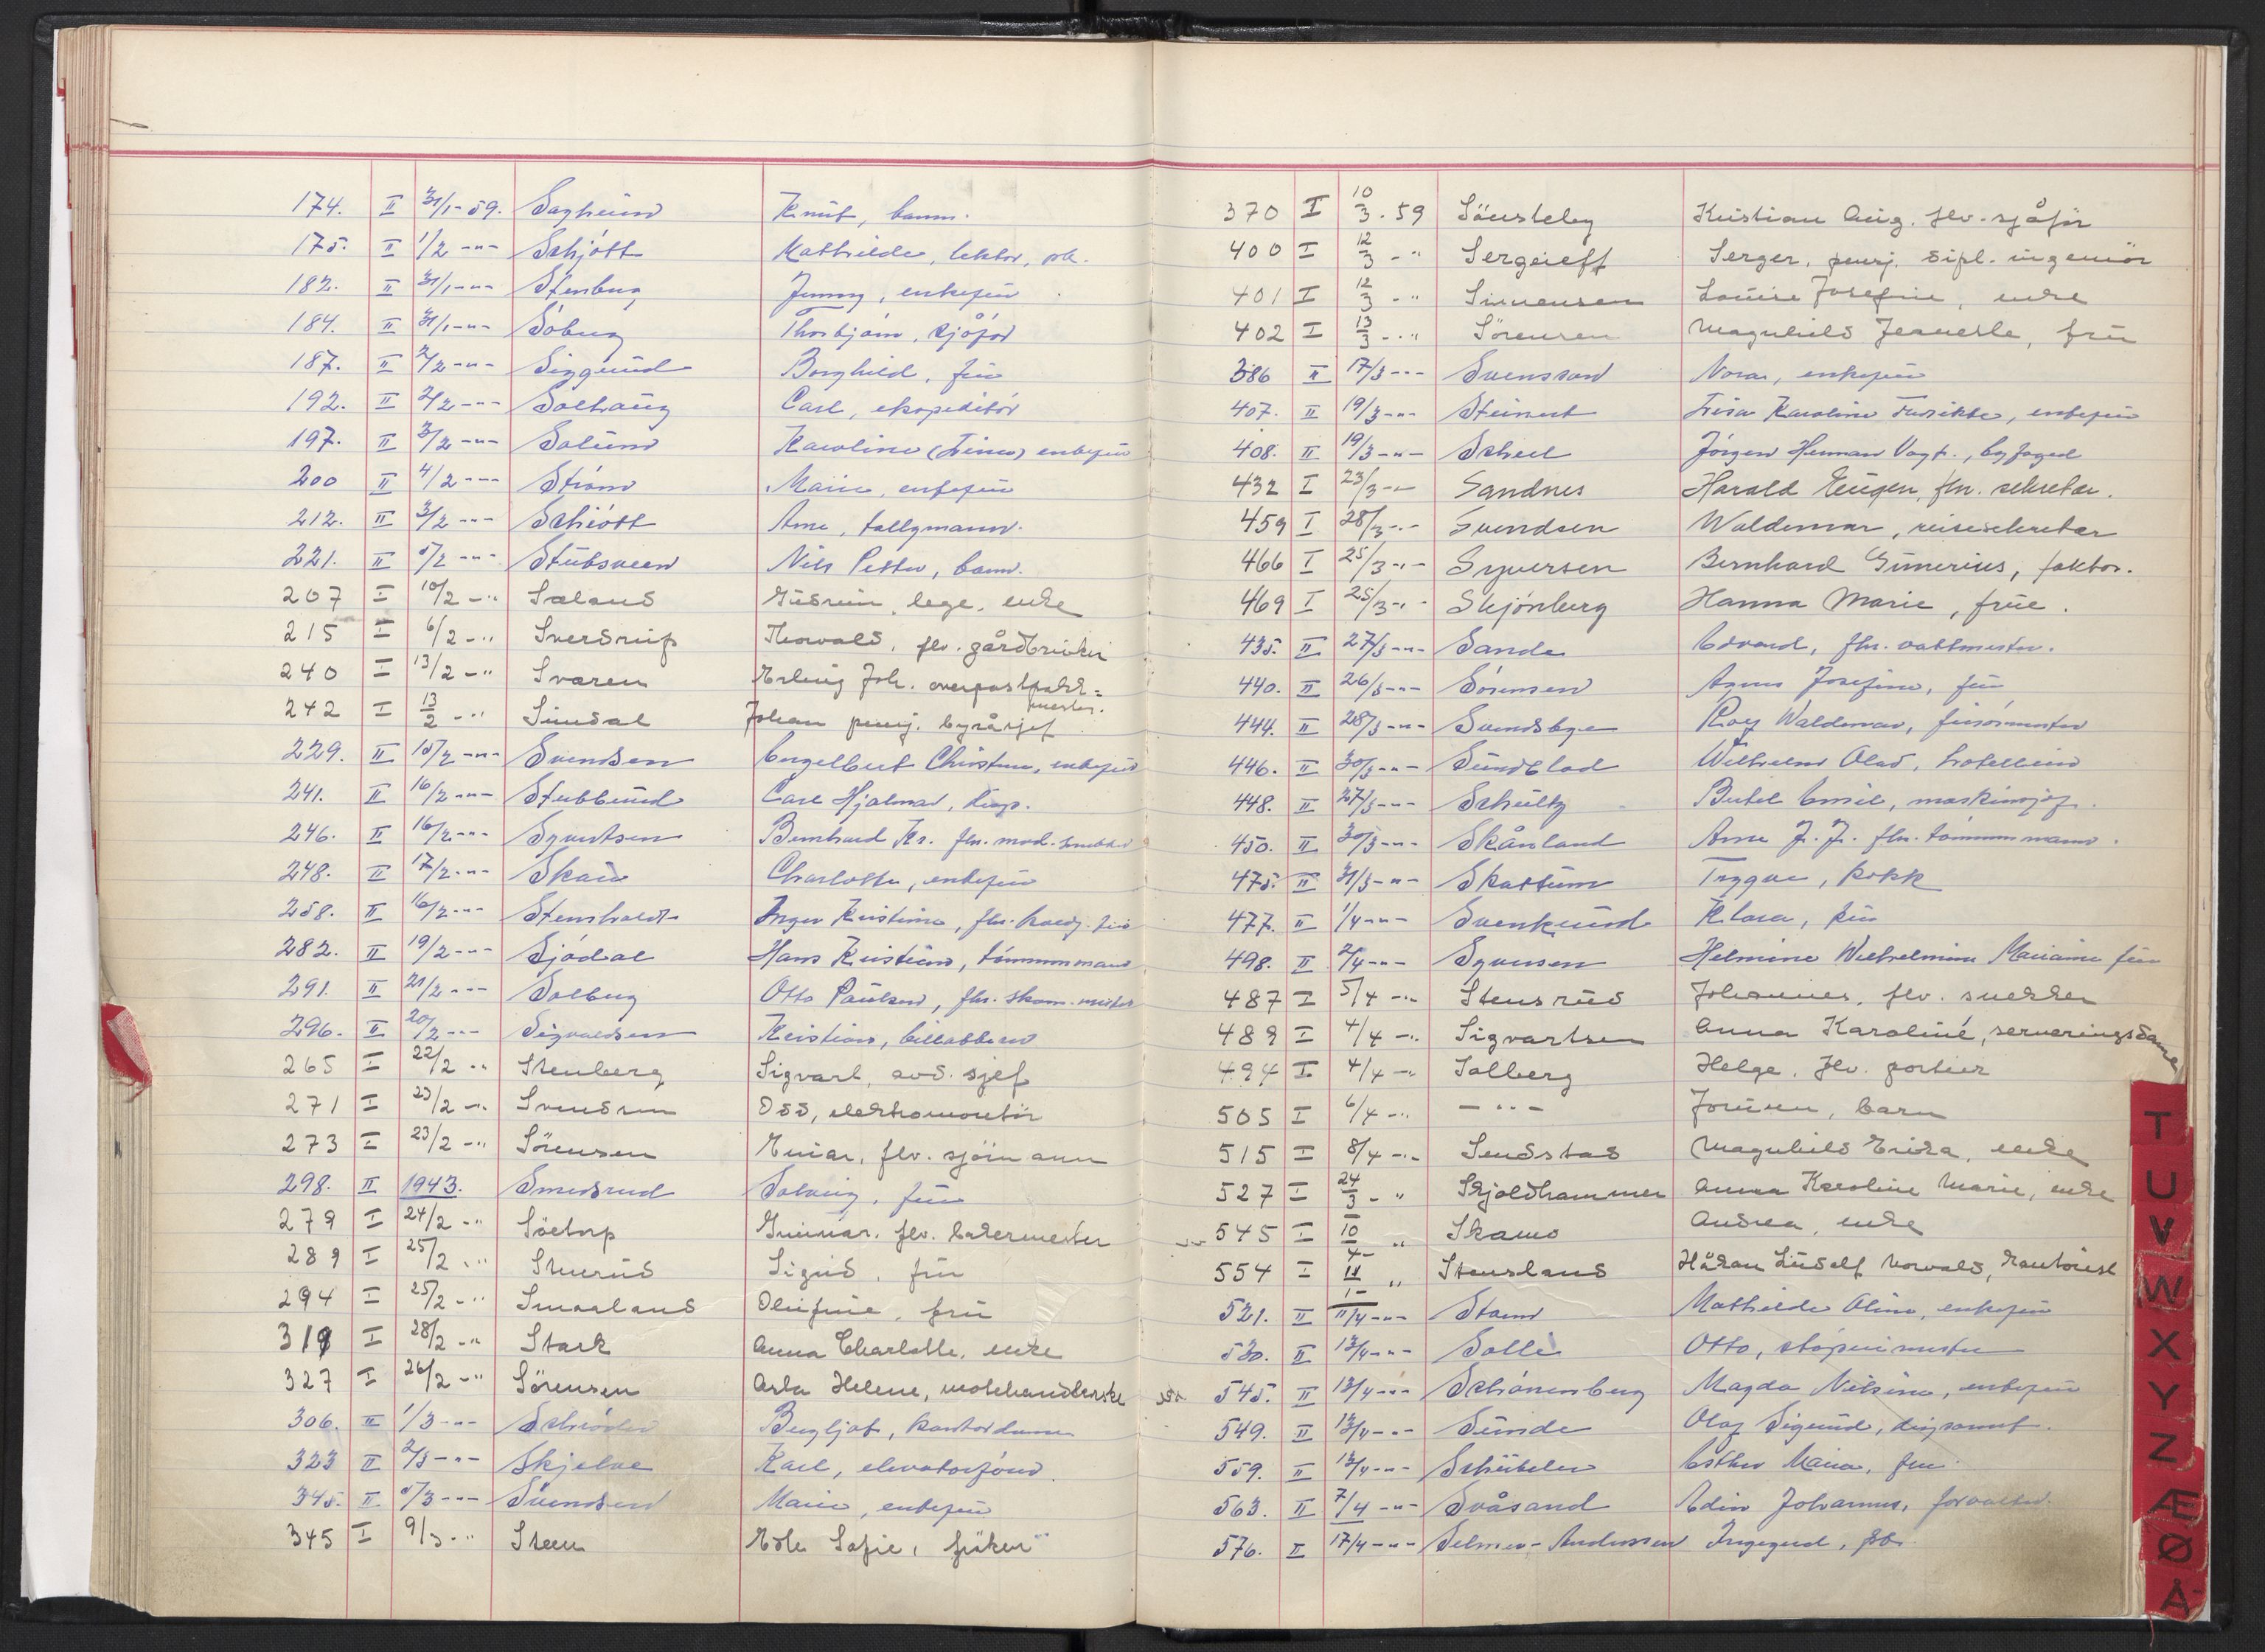 174. II 31/1-59. Sagheim Knut, barn.
175. II 1/2 -"- Schjøtt Mathilde, lektor, frk.
182. II 31/1-"- Stenberg Jenny, enkefru
184. II 31/1-"- Søberg Thorbjørn, sjåfør
187. II 2/2-"- Siggerud Borghild, fru
192. II 2/2-"- Solhaug Carl, ekspeditør
197. II 3/2-"- Solum Karoline (Line) enkefru
200 II 4/2-"- Strøm Marie, enkefru
212. II 3/2-"- Schiøtt Arne, tallymann.
221. II 5/2-"- Stubsveen Nils Petter, barn.
207 I 10/2-" Sæland Gudrun, lege, enke
215 I 6/2-" Sverdrup Thorvald, flv. gårdbruker
240 I 13/2-" Svaren Erling Joh. overpostpakk=
mester.
242 I 13/2-" Sundal Johan pensj. byråsjef
229. II 15/2-"- Svendsen Engelbert Christine, enkefru
241. II 16/2-"- Stubberud Carl Hjalmar, disp.
246. II 16/2-"- Syvertsen Bernhard Kr. fhv. mod. snekker
248. II 17/2-"- Skau Charlotte, enkefru
258. II 16/2-"- Stensholdt Inger Kristine, fhv. husly. frk
282. II 19/2-"- Sjødal Hans Kristian, tømmermann
291. II 21/2-"- Solberg Otto Paulsen, fhv. skom. mester
296. II 20/2-"- Sigvaldsen Kristian, billettør
265 I 22/2-" Stenberg Sigvart, avd. sjef
271 I 23/2-" Svendsen Odd, elektromontør
273 I 23/2-" Sørensen Einar, flv. sjømann
298. II 1943. Smedsrud Solveig, fru
279 I 24/2-" Søetorp Gunnar, flv. bakermester
289 I 25/2-" Stuerud Sigrid, fru
294 I 25/2-" Smaaland Olufine, fru
319 I 28/2-" Stark Anna Charlotte, enke
327 I 26/2-" Sørensen Asta Helene, motehandlerske
306. II 1/3-"- Schrøder Bergljot, kontordame
323 II 2/3-"- Skjelve Karl, elevatorfører.
345. II 5/3-"- Svendsen Marie, enkefru
345 I 9/3-" Steen Edle Sofie, frøken
370 I 10/3.59 Sönsteby Kristian Aug. flv. sjåfør
400 I 12/3-" Sergeieff Serger, pensj. dipl. ingeniør
401 I 12/3-" Simensen Louise Josefine, enke
402 I 13/3-" Sörensen Magnhild Jeanette, fru
386 II 17/3-"- Svensson Nora, enkefru
407. II 19/3-"- Steinert Lisa Karoline Fredrikke, enkefru
408. II 19/3-"- Scheel Jørgen Herman Vogt., byfoged
432 I 23/3-"- Sandnes Harald Eugen, fhv. sekretær.
459 I 28/3-"- Svendsen Waldemar, reisesekretær
466 I 25/3-"- Syversen Bernhard Gunerius, faktor.
469 I 25/3-"- Skjønberg Hanna Marie, frue.
435. II 27/3-"- Sande Edvard, fhv. vaktmester.
440. II 26/3-"- Sørensen Agnes Josefine, fru
444. II 28/3-"- Svendsbye Roy Waldemar, frisørmester
446. II 30/3-"- Sundblad Wilhelm Olav, hotelleier
448. II 27/3-"- Schultz Bertel Emil, maskinsjef.
450. II 30/3-"- Skånland Arne J. J. fhv. tømmermann.
475. II 31/3-"- Skattum Trygve, kokk
477. II 1/4-"- Svenkerud Klara, fru
498. II 2/4-"- Syversen Helmine Wilhelmine Mariane fru
487 I 5/4-" Stensrud Johannes, flv. snekker
489 I 4/4-" Sigvartsen Anna Karoline, serveringsdame
494 I 4/4-" Solberg Helge, flv. portier
505 I 6/4-" -"- Jorunn, barn
515 I 8/4-" Sendstad Magnhild Erika, enke
527 I 24/3-" Skjoldhammer Anna Karoline Marie, enke
545 I 10/4-" Skamo Andrea, enke
554 I 11/1-" Stensland Håkon Ludolf Norvald, kantorist
521. II 11/4-"- Stam Mathilde Oline, enkefru
530. II 13/4-"- Solli Otto, støperimester
545. II 13/4-"- Schønenberg Magda Nilsine, enkefru
549. II 13/4-"- Sunde Olaf Sigurd,
559. II 13/4-"- Schübeler Esther Maria, fru
563. II 7/4-"- Svåsand Edin Johannes, forvalter.
576. II 17/4-"- Selmer-Anderssen Ingegerd, frk.
T
U
V
W
X
Y
Z
Æ
Ø
Å